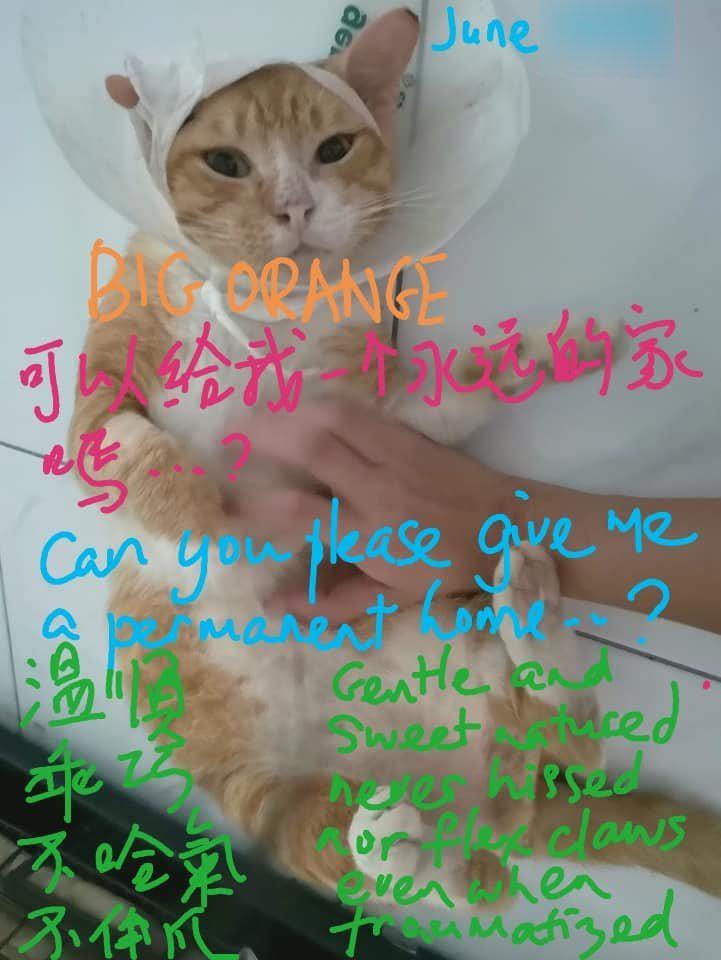 June
BIG ORANGE
可以给我一个永远的家
吗...?
Can you please give me
a permanent home...?
温顺
乖巧
不哈氣
不伸爪
Gentle and
Sweet natured
never hissed
nor flex claws
even when
traumatized